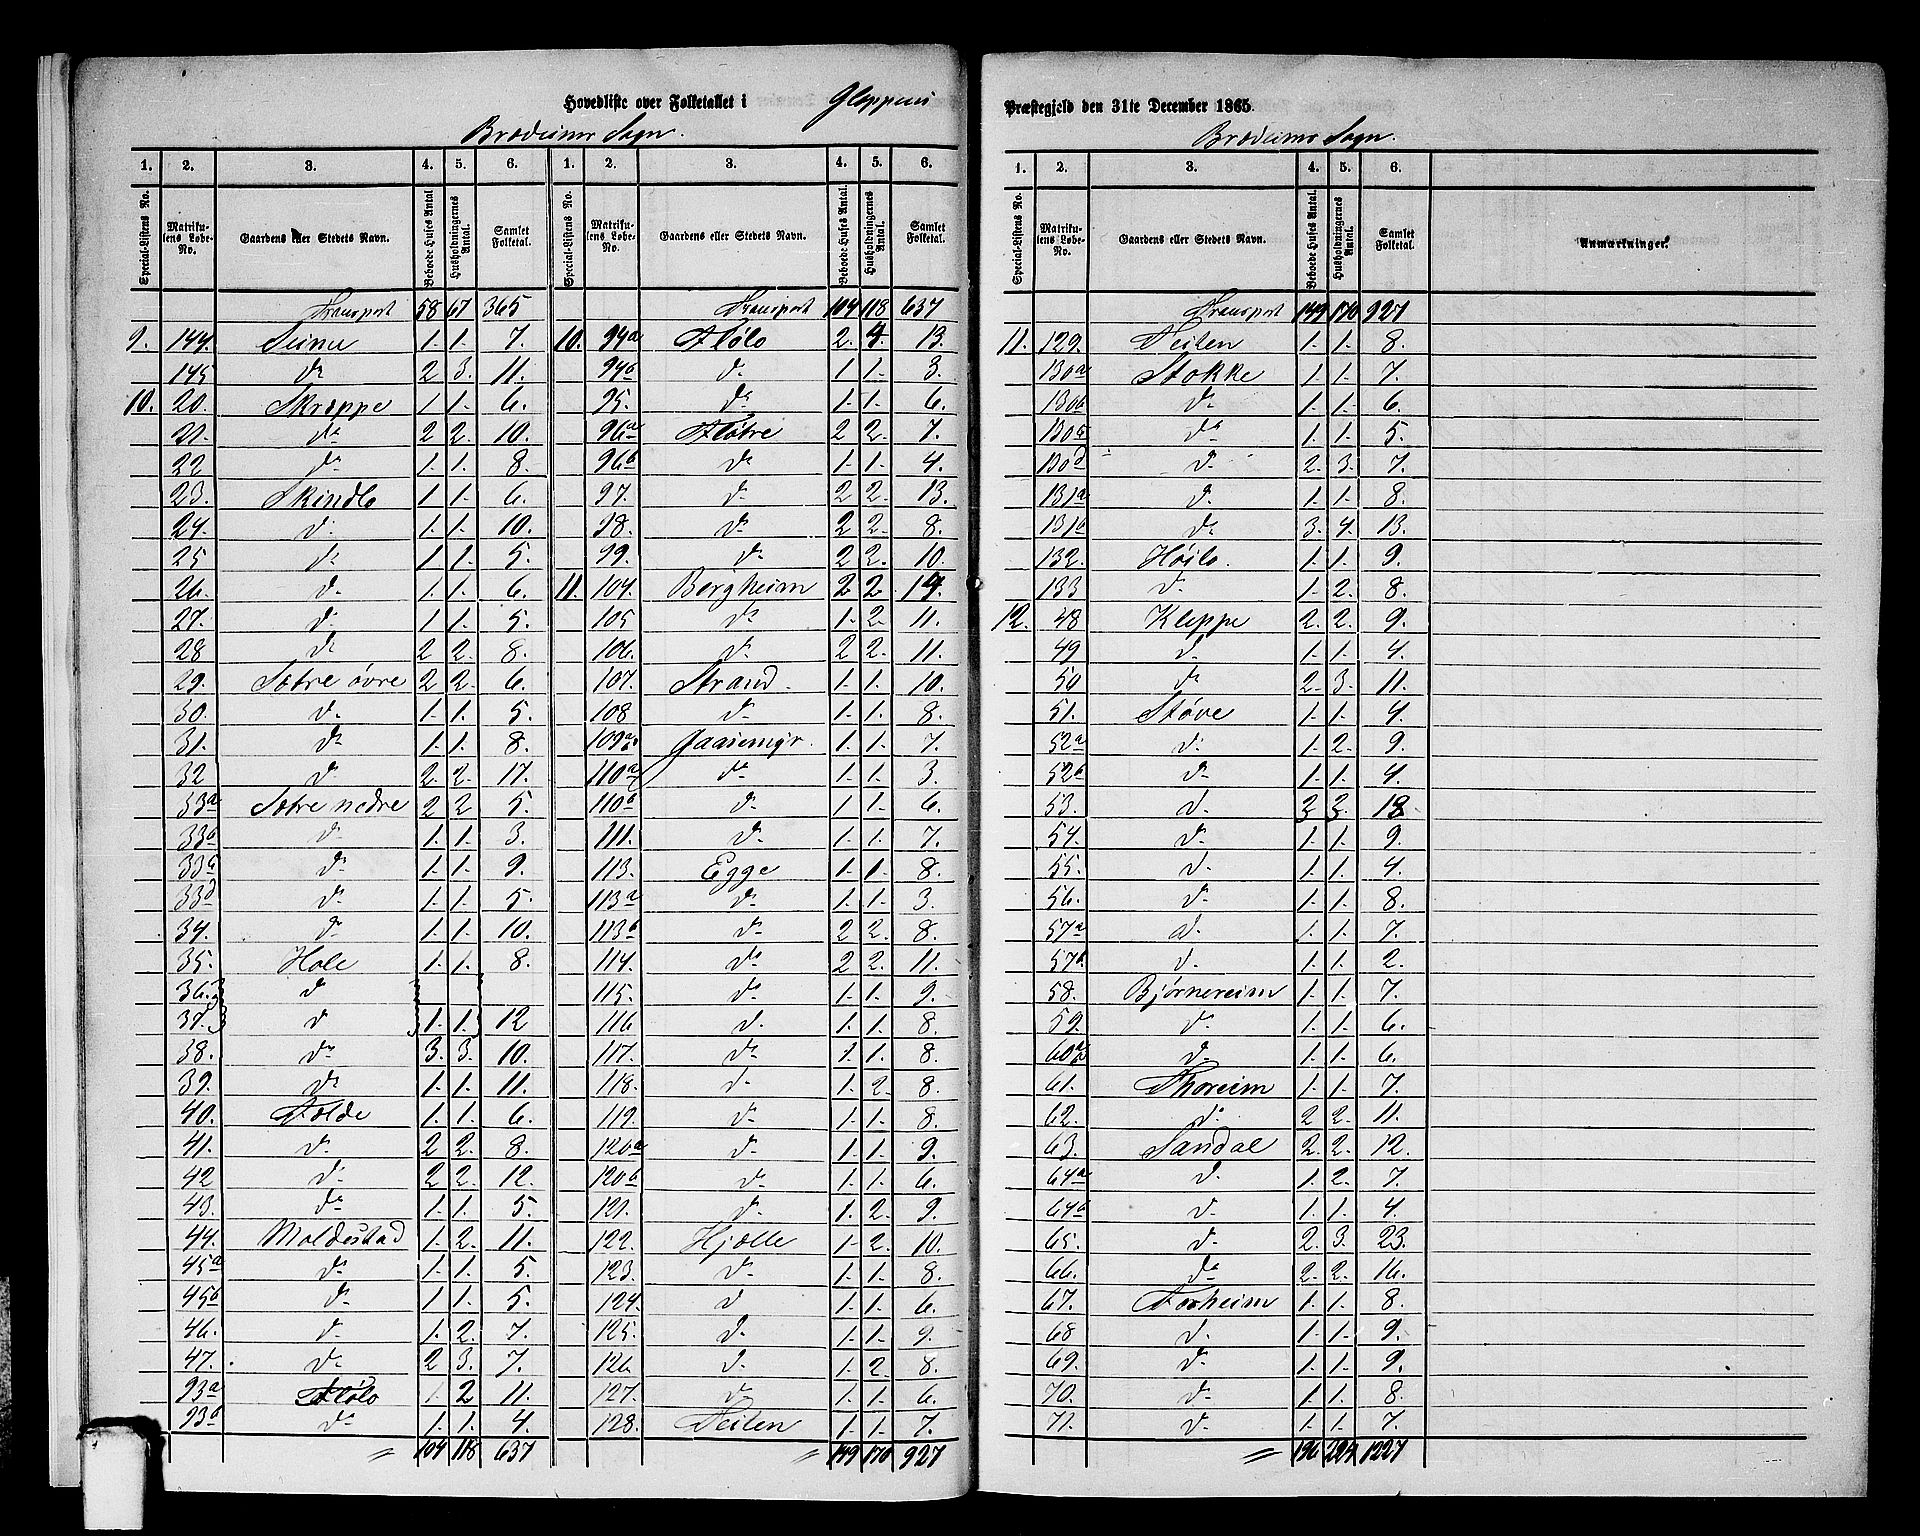 Hovedliste over Folketallet i Gloppens Præstegjeld den 31te December 1865.
Bredeims Sogn. Bredeims Sogn.
1. 2. 3. 4. 5. 6. 1. 2. 3. 4. 5. 6.
Special-Listens No. Matrikulens Løbe-No. Gaardens eller Stedets Navn. Beboede Huses Antal Husholdningernes Antal. Samlet Folketal. Special-Listens No. Matrikulens Løbe-No. Gaardens eller Stedets Navn. Beboede Huses Antal. Husholdningernes Antal. Samlet Folketal.
Transport 58 67 365 Transport 104 118 637
9. 144. Seime 1. 1. 7. 10. 94a Flølo 2. 4. 13.
145 do 2 3. 11. 94b do 1 1. 3.
10. 20. Skreppe 1. 1. 6. 95. do 1. 1. 6.
21. do 2 2. 10. 96a Fløtre 2 2. 7.
22 do 1. 1. 8. 96b do 1. 1. 4.
23. Skindlo 1 1. 6. 97. do 2 2. 13.
24. do 1. 1. 10. 98. do 2 2. 8.
25 do 1 1. 5. 99. do 2 2. 10.
26. do 1. 1. 6. 11. 104. Bergheim 2 2. 14.
27. do 1. 1. 5. 105 do 1. 2. 11.
28 do 2 2. 8. 106. do 2 2. 11.
29. Sætre øvre 2 2. 6. 107. Strand. 1. 1. 10.
30. do 1. 1. 5. 108 do 1. 1. 8.
31. do 1. 1. 8. 109 Gaasemyr. 1. 1. 7.
32 do 2. 2. 17. 110a do 1. 1. 3.
33a Sætre nedre 2 2 5. 110b do 1. 1. 6.
33b do 1. 1. 3. 111. do 1. 1. 7.
33c do 1. 1. 9. 113. Egge 1. 1. 8.
33d do 1. 1. 5. 113a do 1. 1. 3.
34. do 1. 1. 10. 113b do 2 2. 8.
35. Hole 1. 1. 8. 114. do 2 2. 11.
36. do 115. do 1. 1. 9.
37. do 1. 1. 12 116 do 1. 1. 8.
38. do 3. 3. 10. 117. do 1. 1. 8.
39. do 1. 1. 11. 118. do 1. 2. 8.
40. Folde 1. 1. 6. 119. do 1. 1. 8.
41. do 2 2. 8. 120a do 1. 1. 9.
42 do 2 2. 12. 120b do 1. 1. 6.
43. do 1. 1. 5. 121. do 1. 2. 9.
44. Moldestad 1. 2. 11. 122. Hjelle 1. 2. 10.
45a do 1. 1. 5. 123. do 1. 1. 8.
45b do 1 1. 5. 124. do 1. 1. 6.
46. do 1. 2. 7. 125. do 1. 1. 9.
47. do 2 3. 7. 126. do 1. 2 8.
93a Flølo 1. 2 11. 127. do 1. 1. 6.
93b do 1. 1. 4. 128. Seiten 1. 1. 7.
104 118 637 149 170 927
1. 2. 3. 4. 5. 6.
Special-Listens No. Matrikulens Løbe-No. Gaardens eller Stedets Navn. Beboede Huses Antal. Husholdningernes Antal. Samlet Folketal. Anmærkninger.
Transport 149 170 927
11. 129. Seiten 1. 1. 8.
130a Stokke 1. 1. 7.
130b do 1. 1. 6.
130c do 1. 1. 5.
130d do 2. 3. 7.
131a do 1. 1. 8.
131b do 3. 4. 13.
132. Høilo. 1. 1. 9.
133 do 1. 2. 8.
12. 48 Kleppe 2. 2. 9.
49 do 1. 1. 4.
50 do 2. 3. 11.
51. Støve 1. 1. 4.
52a do 1. 2. 9.
52b do 1. 1. 4.
53. do 3 3. 18
54. do 1. 1. 9.
55. do 1. 1. 4.
56. do 1. 1. 8.
57a do 1. 1. 7.
57b do 1. 1. 2.
58. Bjørnereim 1. 1. 7.
59. do 1. 1. 6.
60 do 1. 1. 6.
61. Thoreim 1. 1. 7.
62. do 2 2. 11.
63. Sandal 2. 2. 12.
64a do 1. 2. 7.
64b do 1. 1. 4.
65. do 2. 3. 23.
66. do 2. 2. 16.
67. Forheim 1. 1. 8.
68 do 1. 1. 9.
69. do 1. 1. 9.
70. do 1. 1. 8.
71. do 1. 1. 7.
196 224 1227